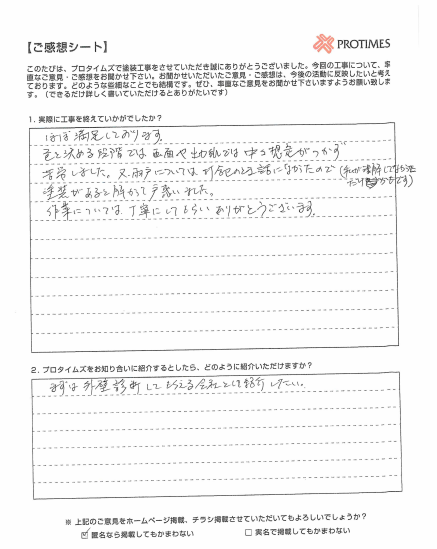 【ご感想シート】
PROTIMES
このたびは、プロタイムズで塗装工事をさせていただき誠にありがとうございました。今回の工事について、率
直なご意見・ご感想をお聞かせ下さい。お聞かせいただいたご意見・ご感想は、今後の活動に反映したいと考え
ております。どのような些細なことでも結構です。ぜひ、率直なご意見をお聞かせ下さいますようお願い致しま
す。（できるだけ詳しく書いていただけるとありがたいです）
1. 実際に工事を終えていかがでしたか？
ほぼ満足しております。
色を決める段階では画面や出力紙では中々想像がつかず
苦労しました。又、雨戸については
(私が理解してなかっ
塗装があると解かって戸惑いました。
作業については丁寧にしてもらいありがとうございます。
2. プロタイムズをお知り合いに紹介するとしたら、どのように紹介いただけますか？
まずは外壁診断してもらえる会社として紹介したい。
※ 上記のご意見をホームページ掲載、チラシ掲載させていただいてもよろしいでしょうか？
☑ 匿名なら掲載してもかまわない
□ 実名で掲載してもかまわない